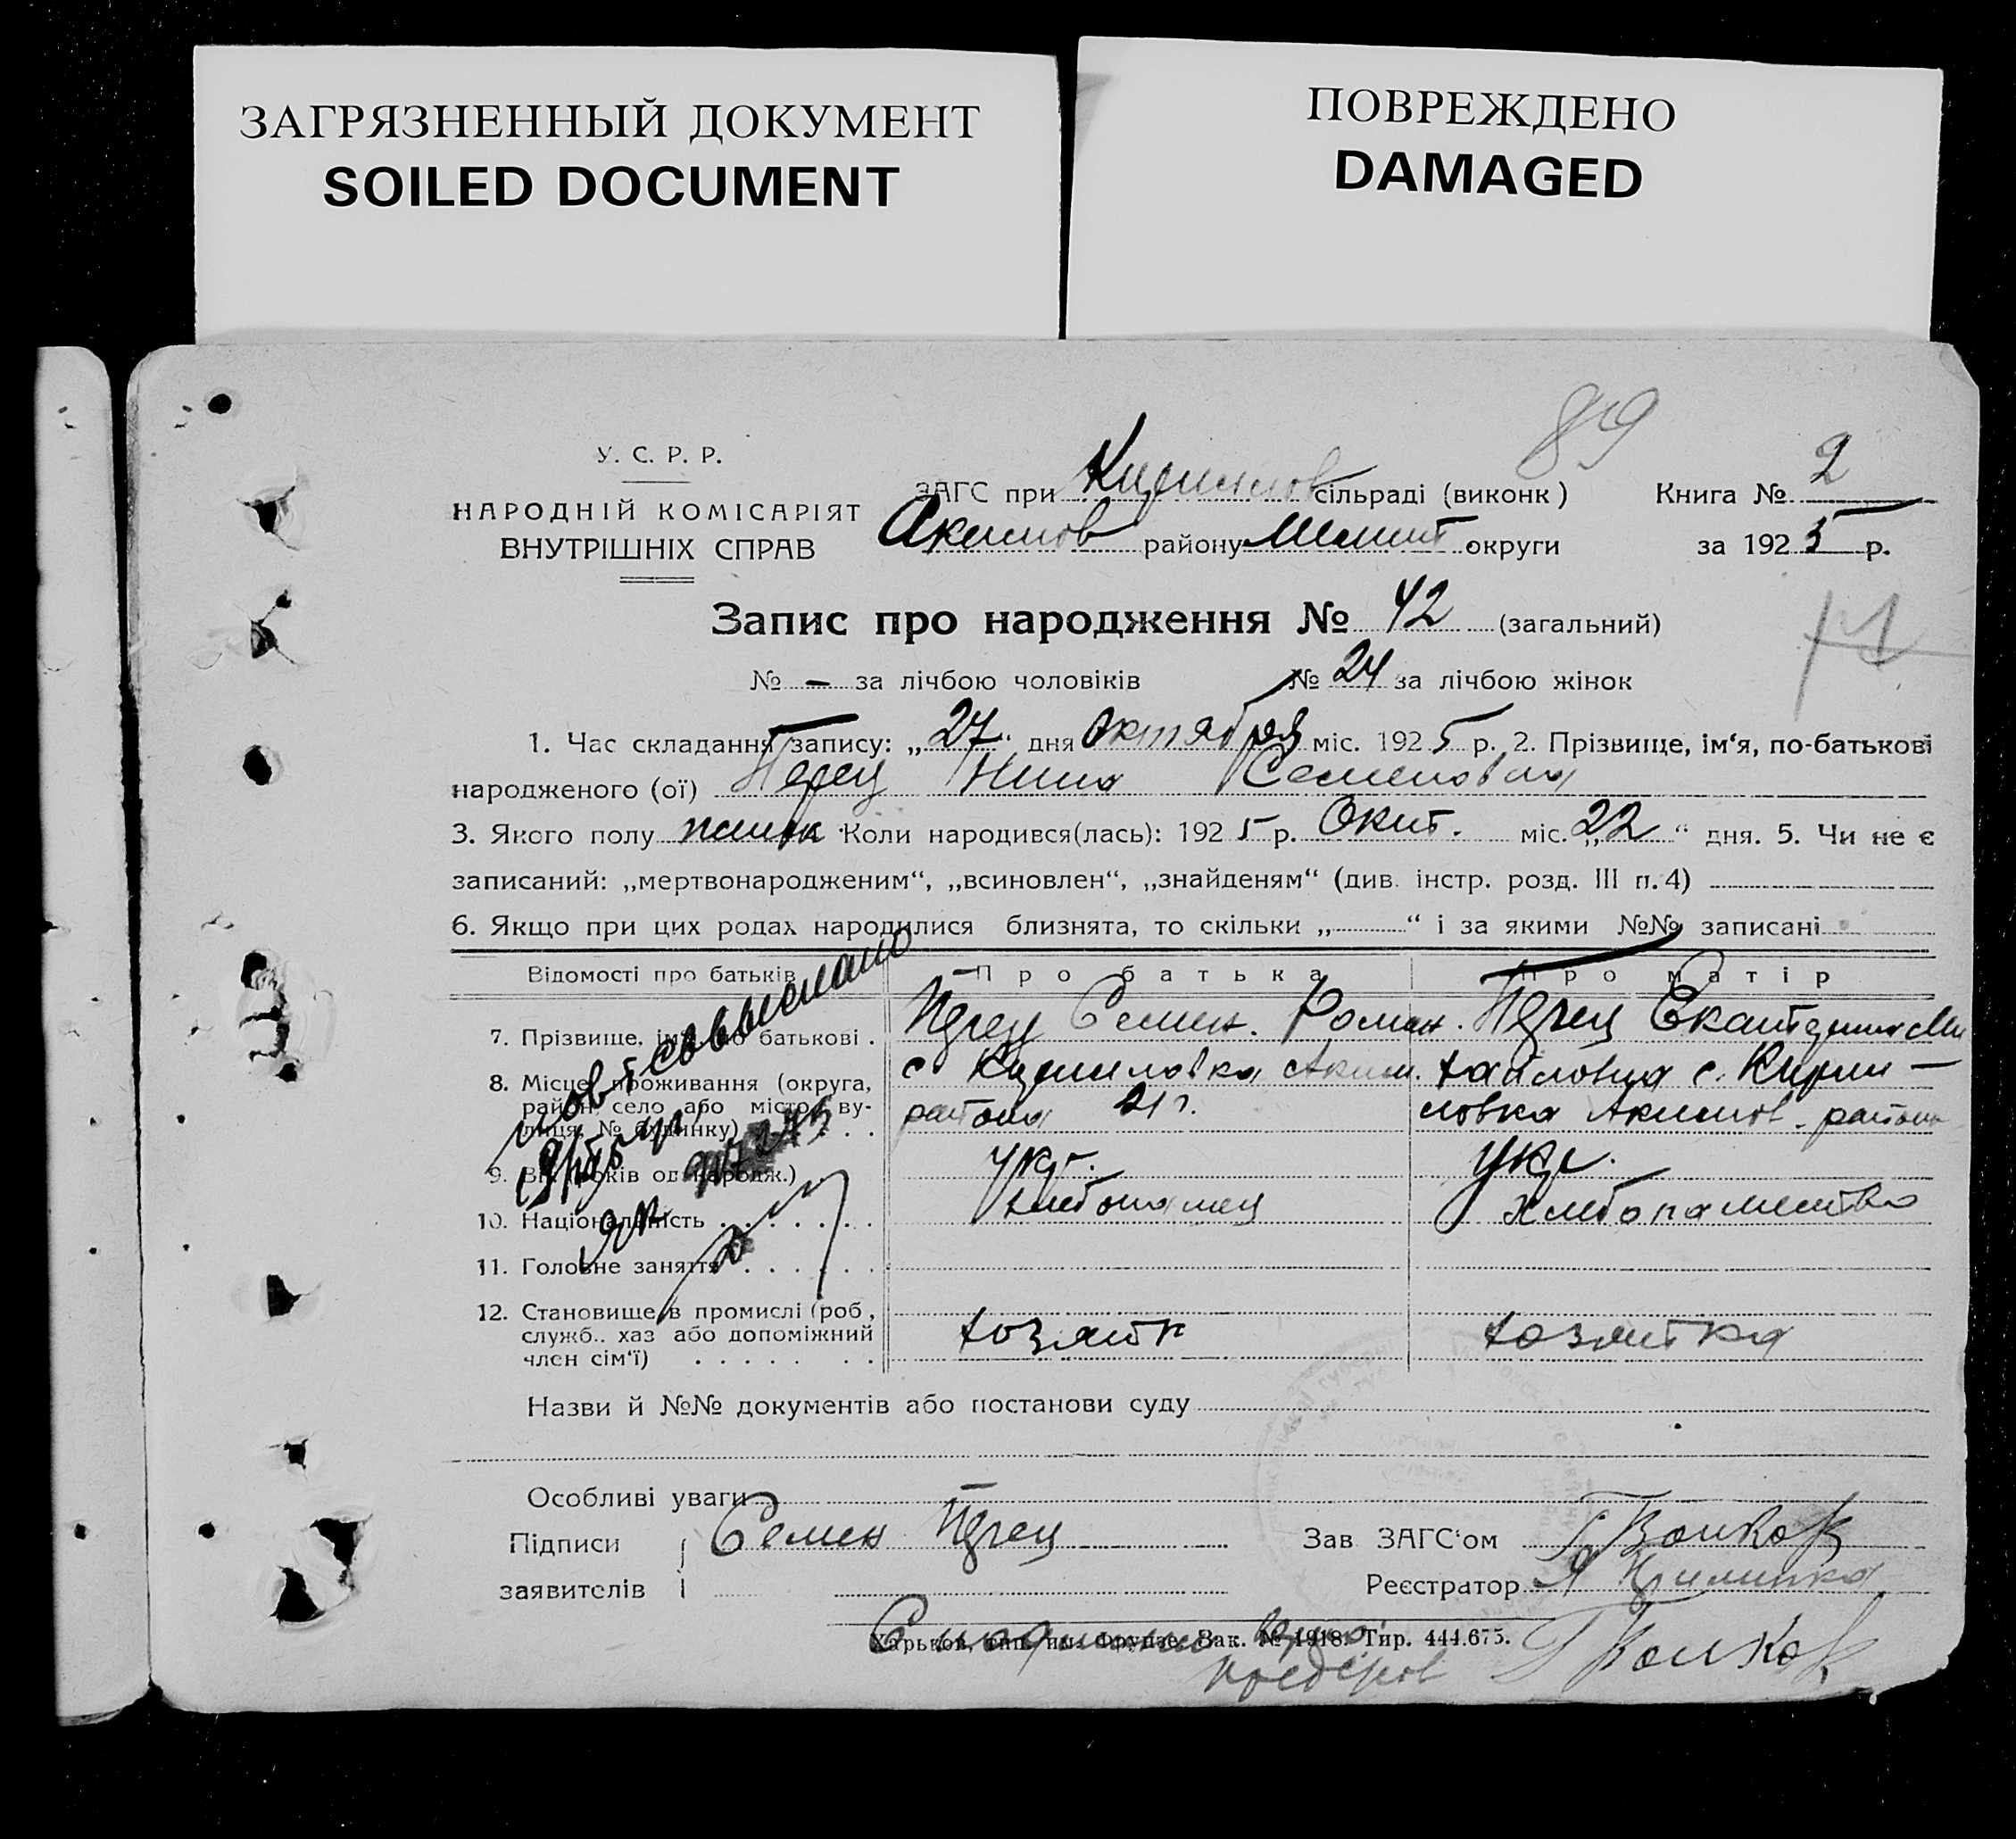 ЗАГРЯЗНЕННЫЙ ДОКУМЕНТ
SOILED DOCUMENT
ПОВРЕЖДЕНО
DAMAGED
89
У. С. Р. Р.
НАРОДНІЙ КОМІСАРІЯТ
ВНУТРІШНІХ СПРАВ
ЗАГС при Кирилов сільраді (виконк)
Акимов району Мелит округи
Книга № 2
за 1925 р.
Запис про народження № 42 (загальний)
№ — за лічбою чоловіків № 24 за лічбою жінок
1. Час складання запису: „27“ дня октября міс. 1925 р. 2. Прізвище, ім‘я, по-батькові
народженого (ої) Перец Нина Семеновна
3. Якого полу Коли народився(лась): 1925 р. Окт. міс. „22“ дня. 5. Чи не є
записаний: „мертвонародженим“, „всиновлен“, „знайденям“ (див. інстр. розд. III п. 4)
6. Якщо при цих родах народилися близнята, то скільки „ “ і за якими №№ записані
Відомості про батьків Про батька Про матір
7. Прізвище, ім‘я, по батькові . Перец Семен. Роман. Перец Екатерина Ми
8. Місце проживання (округа, с Кириловка Аким. хайловна с. Кирил-
район, село або місто, ву- района 21 г. ловка Акимов. района
лиця, № будинку) . . . .
9. Вік (років од народж.) укр. укр.
10. Національність . . . . . . . хлебопашец хлебопашество
11. Головне заняття . . . . . .
12. Становище в промислі (роб,
служб.. хаз або допоміжний хозяин хозяйка
член сім‘ї) . . . . . . . .
Назви й №№ документів або постанови суду
Особливі уваги
Підписи Семен Перец Зав ЗАГС‘ом Г Волков
заявителів Реєстратор
Харьков, тип. им. Фрунзе. Зак. № 1918. Тир. 444.675.
С подлинным верно
Г Волков